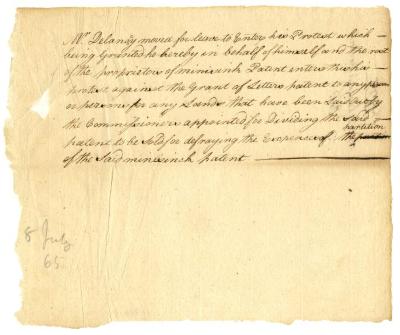 Mr. Delancy moved for leave to Enter his Protest which
being Granted he hereby in behalf of himself and the rest
of the proprietors of minisink Patent enters this his
protest against the Grant of Letters patent to any person
or persons for any Lands that have been Laid out by
the Commissioners appointed for Dividing the Said
patent to be Sold for defraying the Expences of the partition
of the Said minisinck patent
8 July
65